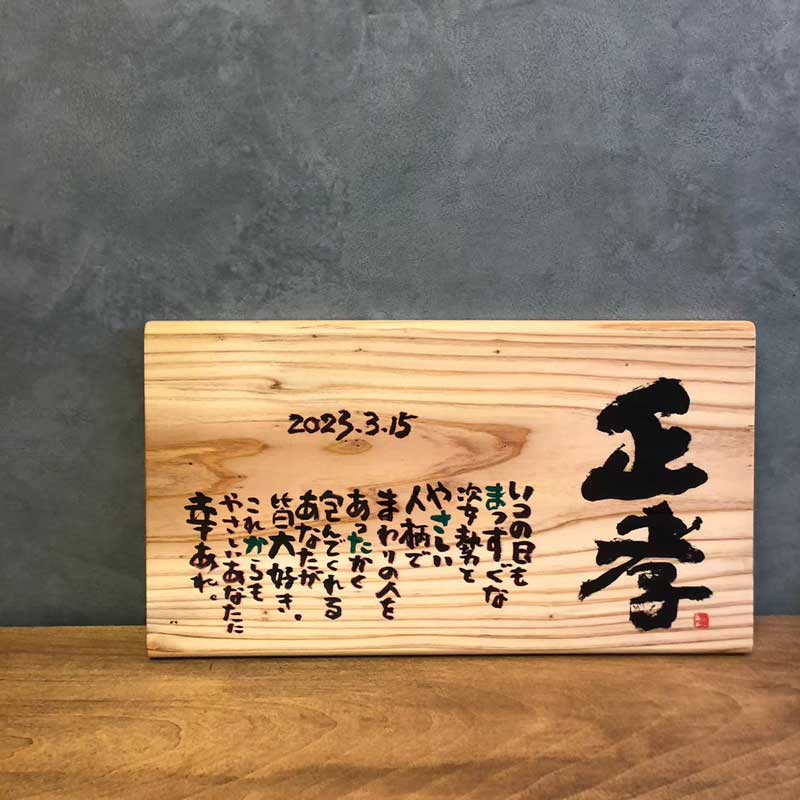 正孝
2023.3.15
いつの日も
まっすぐな
姿勢と
やさしい
人柄で
まわりの人を
あったかく
包んでくれる
あなたが
皆大好き。
これからも
やさしいあなたに
幸あれ。